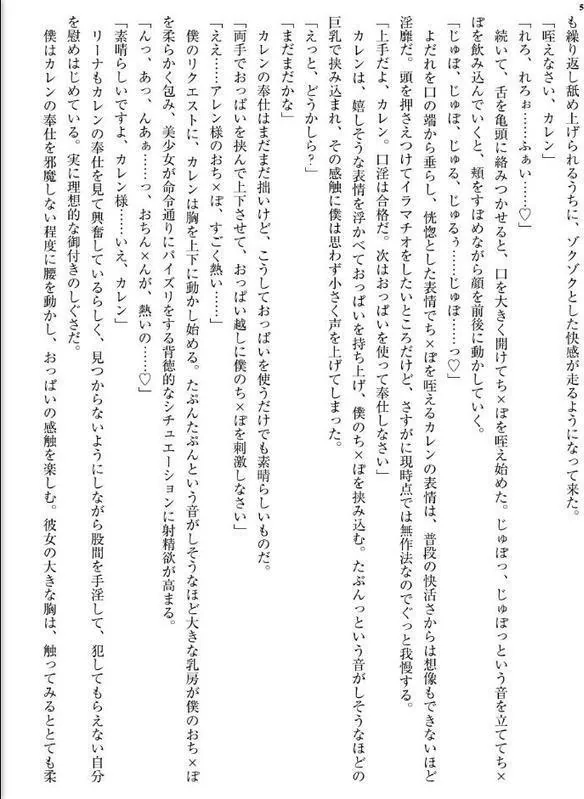 5
も繰り返し舐め上げられるうちに、ゾクゾクとした快感が走るようになって来た。
「咥えなさい、カレン」
「れろ、れろぉ……ふぁぃ……♡」
続いて、舌を亀頭に絡みつかせると、口を大きく開けてち×ぽを咥え始めた。じゅぽっ、じゅぽっという音を立ててち×
ぽを飲み込んでいくと、頬をすぼめながら顔を前後に動かしていく。
「じゅぽ、じゅぽ、じゅる、じゅるぅ……じゅぽ……っ♡」
よだれを口の端から垂らし、恍惚とした表情でち×ぽを咥えるカレンの表情は、普段の快活さからは想像もできないほど
淫靡だ。頭を押さえつけてイラマチオをしたいところだけど、さすがに現時点では無作法なのでぐっと我慢する。
「上手だよ、カレン。口淫は合格だ。次はおっぱいを使って奉仕しなさい」
カレンは、嬉しそうな表情を浮かべておっぱいを持ち上げ、僕のち×ぽを挟み込む。たぷんっという音がしそうなほどの
巨乳で挟み込まれ、その感触に僕は思わず小さく声を上げてしまった。
「えっと、どうかしら？」
「まだまだかな」
カレンの奉仕はまだまだ拙いけど、こうしておっぱいを使うだけでも素晴らしいものだ。
「両手でおっぱいを挟んで上下させて、おっぱい越しに僕のち×ぽを刺激しなさい」
「ええ……アレン様のおち×ぽ、すごく熱い……」
僕のリクエストに、カレンは胸を上下に動かし始める。たぷんたぷんという音がしそうなほど大きな乳房が僕のおち×ぽ
を柔らかく包み、美少女が命令通りにパイズリをする背徳的なシチュエーションに射精欲が高まる。
「んっ、あっ、んあぁ……っ、おちん×んが、熱いの……♡」
「素晴らしいですよ、カレン様……いえ、カレン」
リーナもカレンの奉仕を見て興奮しているらしく、見つからないようにしながら股間を手淫して、犯してもらえない自分
を慰めはじめている。実に理想的な御付きのしぐさだ。
僕はカレンの奉仕を邪魔しない程度に腰を動かし、おっぱいの感触を楽しむ。彼女の大きな胸は、触ってみるととても柔